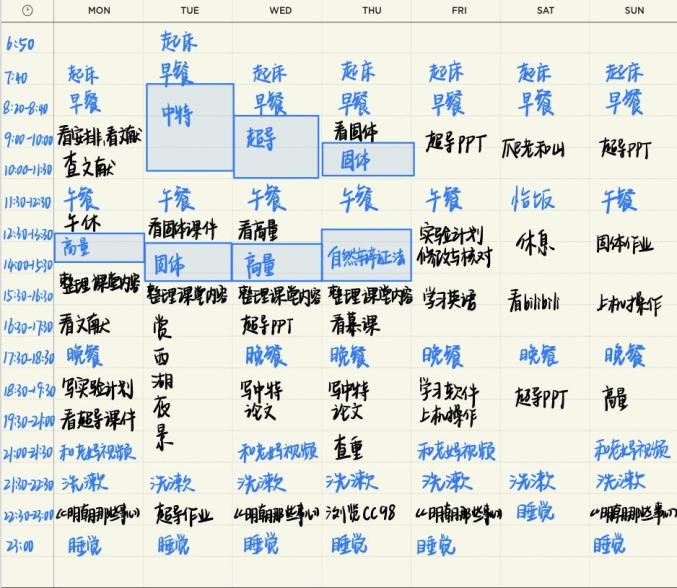 MON TUE WED THU FRI SAT SUN
6:50 起床
7:40 起床 早餐 起床 起床 起床 起床 起床
8:20-8:40 早餐 中特 早餐 早餐 早餐 早餐 早餐
9:00-10:00 看安排、看文献 超导 看固体 超导PPT 爬老和山 超导PPT
10:00-11:30 查文献 固体
11:30-12:30 午餐 午餐 午餐 午餐 午餐 恰饭 午餐
午休 看固体课件 看高量
12:30-13:30 高量 实验计划 休息 固体作业
14:00-15:30 固体 高量 自然辩证法 修改与核对
15:30-16:30 整理课堂内容 整理课堂内容 整理课堂内容 整理课堂内容 学习英语 看bilibili 上机操作
16:30-17:30 看文献 赏 超导PPT 看慕课
17:30-18:30 晚餐 西 晚餐 晚餐 晚餐 晚餐 晚餐
18:30-19:30 写实验计划 湖 写中特 写中特 学习软件 超导PPT 高量
19:30-21:00 看超导课件 夜 论文 论文 上机操作
21:00-21:30 和老妈视频 景 和老妈视频 查重 和老妈视频 和老妈视频
21:30-22:30 洗漱 洗漱 洗漱 洗漱 洗漱 洗漱 洗漱
22:30-23:00 《明朝那些事儿》 超导作业 《明朝那些事儿》 浏览CC98 《明朝那些事儿》 睡觉 《明朝那些事儿》
23:00 睡觉 睡觉 睡觉 睡觉 睡觉 睡觉